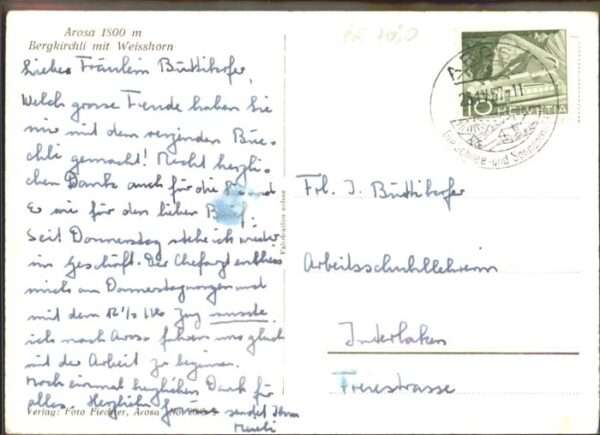 Arosa 1800 m
Bergkirchli mit Weisshorn
Liebes Fräulein Büttikofer,
Welch grosse Freude haben Sie
mir mit dem reizenden Büe-
chli gemacht! Recht herzli-
chen Dank auch für die
wie für den lieben Brief.
Seit Donnerstag stehe ich wieder
im Geschäft. Der Chefarzt entliess
mich am Donnerstagmorgen und
mit dem Zug musste
ich nach Arosa fahren um gleich
mit der Arbeit zu beginnen.
Noch einmal herzlichen Dank für
alles. Herzlich sendet Ihnen
Verlag: Foto Fiedler, Arosa
Fabrikation suisse
10 HELVETIA
Frl. J. Büttikofer
Arbeitsschullehrerin
Interlaken
Freiestrasse